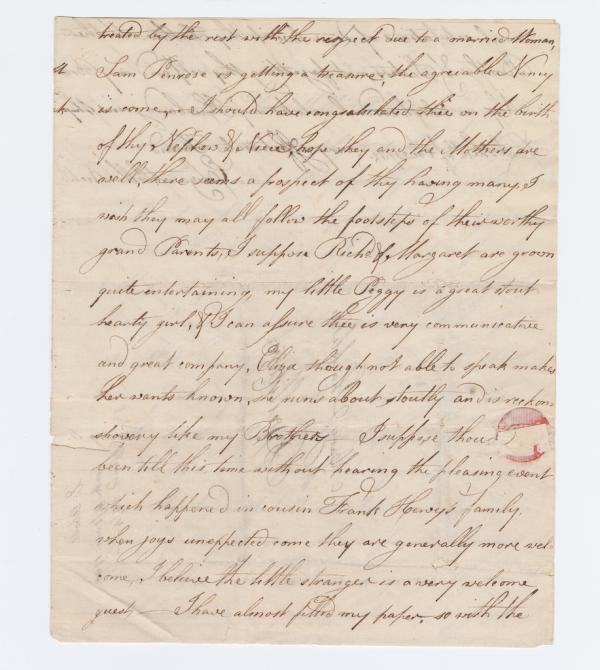 treated by the rest with the respect due to a married Woman,
Sam Penrose is getting a treasure, the agreeable Nancy
is come, — I should have congratulated thee on the birth
of thy Nephew & Niece, hope they and the Mothers are
well, there seems a prospect of thy having many, I
wish they may all follow the footsteps of their worthy
grand Parents, I suppose Richd & Margaret are grown
quite entertaining, my little Peggy is a great stout
hearty girl, & I can assure thee is very communicative
and great company, Eliza though not able to speak makes
her wants known, she runs about stoutly and is reckon
very like my Brothers — I suppose thou
been till this time without hearing the pleasing event
which happened in cousin Frank family,
when joys unexpected come they are generally more wel
come, I believe the little stranger is a very welcome
guest — I have almost filled my paper, so with the